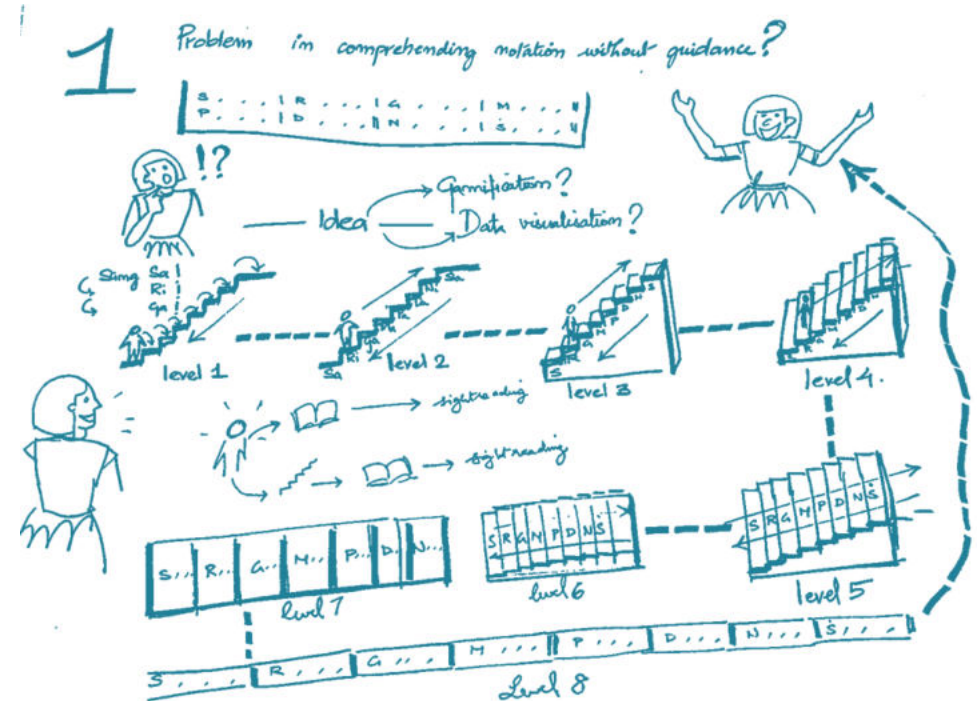 1
Problem in comprehending notation without guidance?
S . . . . | R . . . | G . . . . | M . . . . ||
P . . . . | D . . . || N . . . | Ṡ . . . . ||
!?
Idea
Gamification?
Data visualisation?
Sa
Ri
Ga
level 1
Sa
Ri
Ga
Ni
Sa
level 2
S
P
S
level 3
level 4.
sightreading
sight reading
S R G M P D N Ṡ
level 5
S R G M P D N Ṡ
level 6
S... R... G... M... P... D.. N...
level 7
S . . . . R . . . G . . . M . . . P . . . D . . . N . . . Ṡ . . .
Level 8